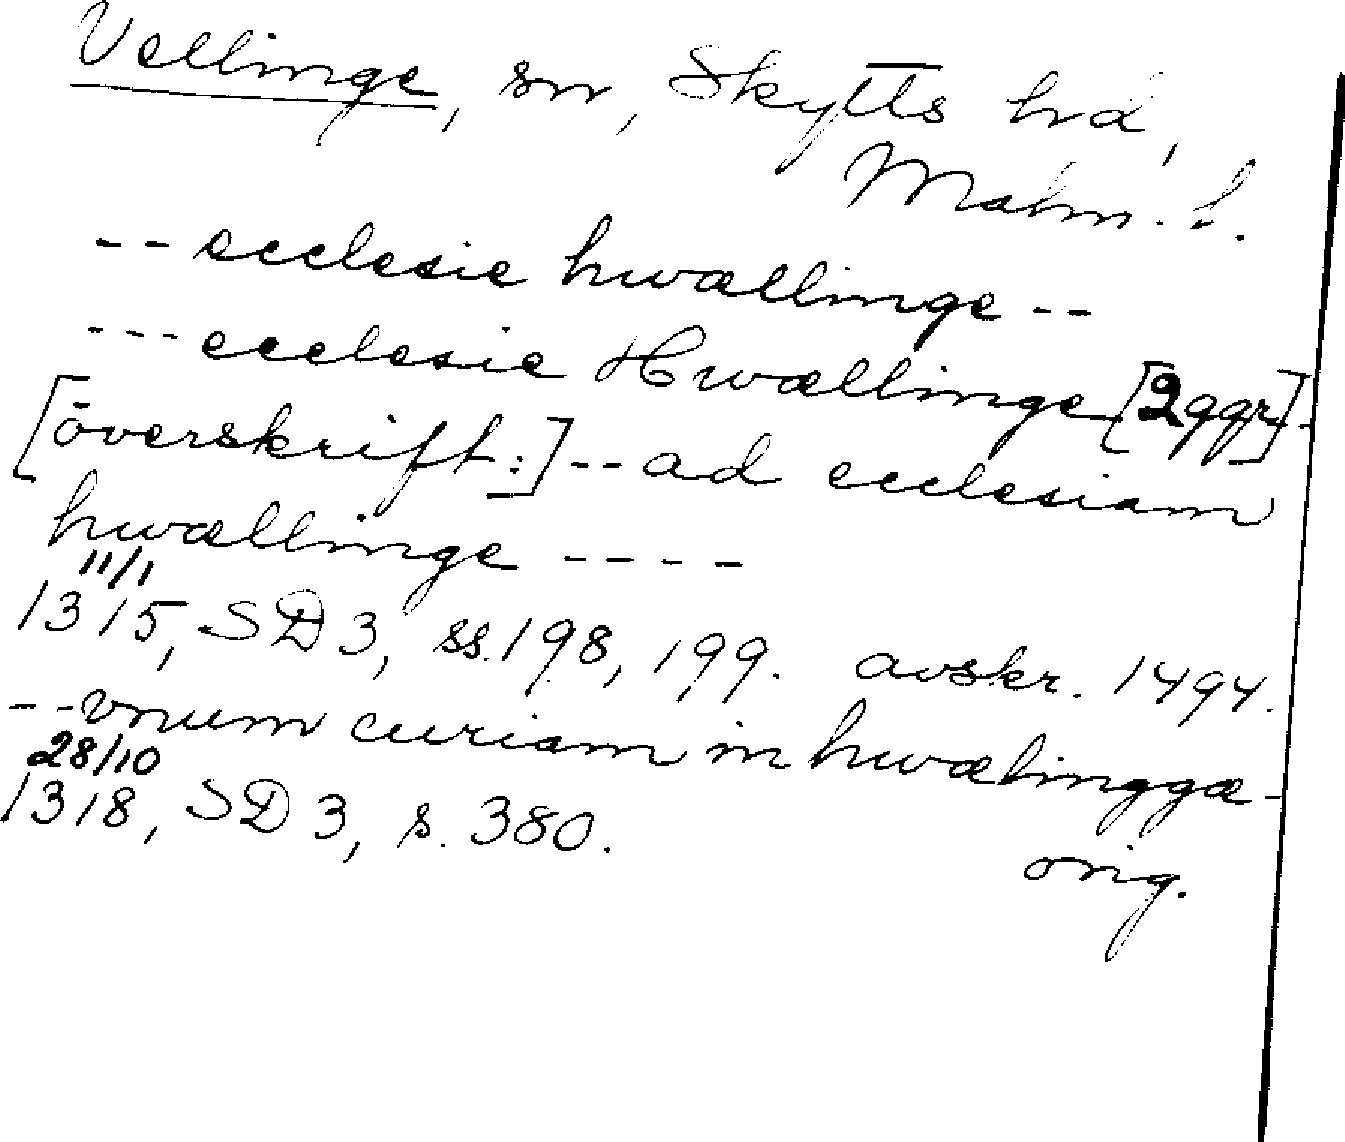 Vellinge, sn, Skytts hd,
Malm. l.
-- ecclesie hwællinge --
--- ecclesie Hwællinge [2 ggr]-
[överskrift:] -- ad ecclesiam
hwællinge ----
11/1
1315, SD 3, ss. 198, 199. avskr. 1494.
-- vnum curiam in hwælinggæ -
28/10
1318, SD 3, s. 380.
orig.